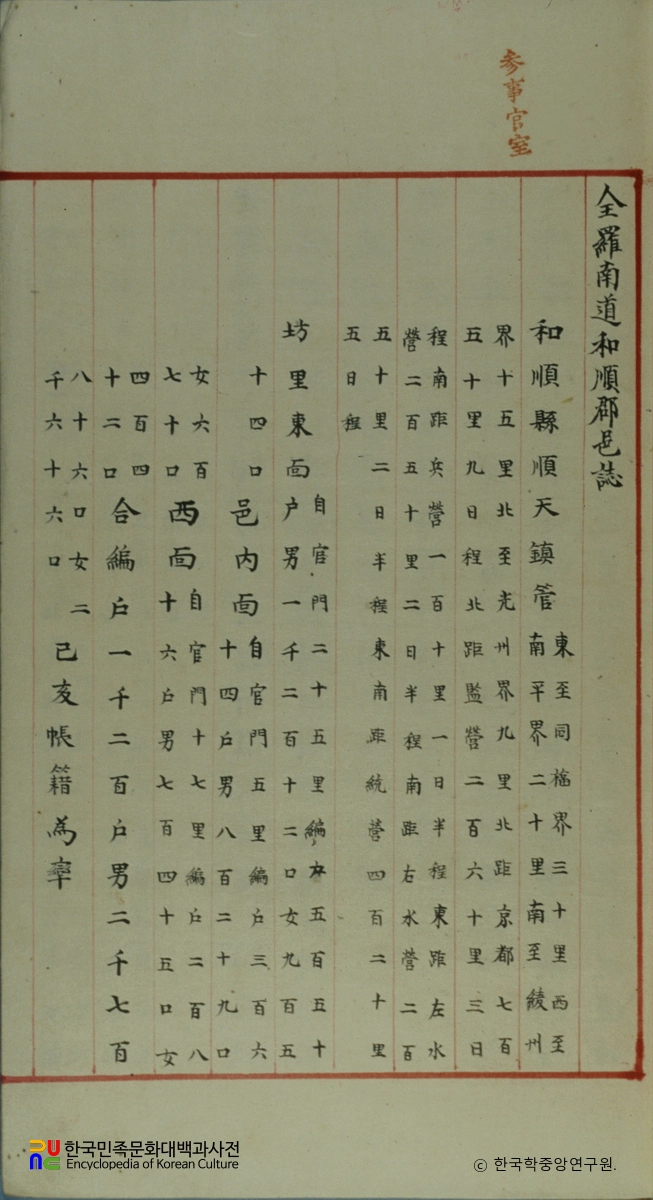 参事官室
全羅南道和順郡邑誌
和順縣順天鎮管
東至同福界三十里西至
南平界二十里南至綾州
界十五里北至光州界九里北距京都七百
五十里九日程北距監營二百六十里三日
程南距兵營一百十里一日半程東距左水
營二百五十里二日半程南距右水營二百
五十里二日半程東南距統營四百二十里
五日程
坊里東面
自官門二十五里編戶五百五十
戶男一千二百十二口女九百五
十四口
邑內面
自官門五里編戶三百六
十四戶男八百二十九口
女六百
七十口
西面
自官門十七里編戶二百八
十六戶男七百四十五口女
四百四
十二口
合編戶一千二百戶男二千七百
八十六口女二
千六十六口
己亥帳籍為率
한국민족문화대백과사전
Encyclopedia of Korean Culture
ⓒ 한국학중앙연구원.